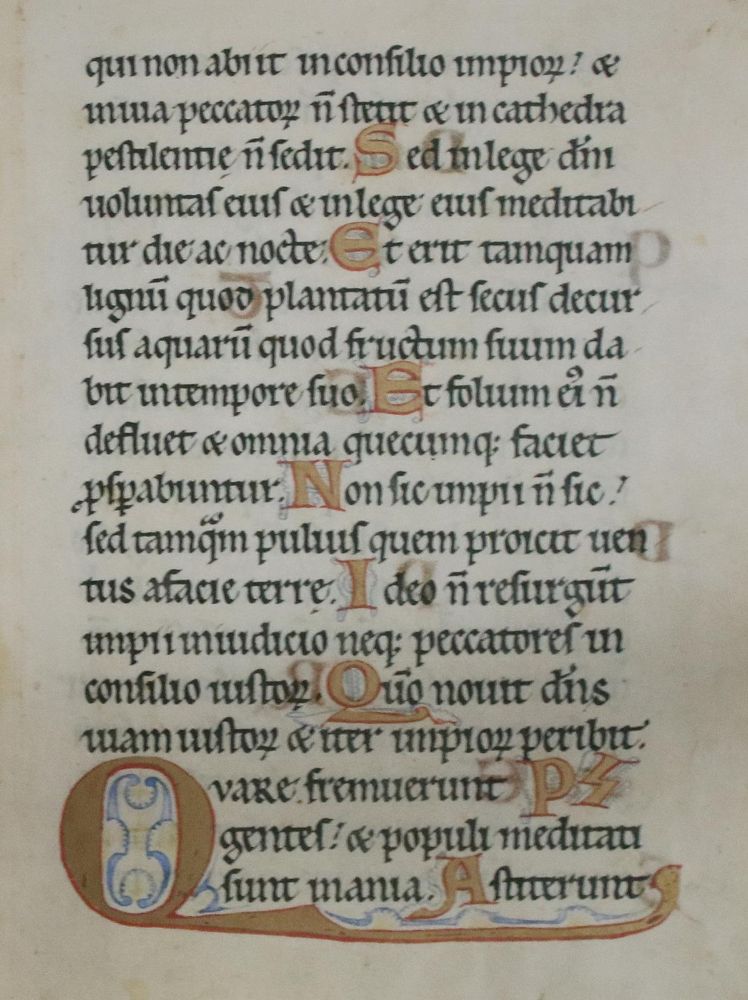 qui non abiit in consilio impioꝝ! &
in uia peccatoꝝ n̄ stetit & in cathedra
pestilentię n̄ sedit. Sed in lege dn̄i
uoluntas eius & in lege eius meditabi
tur die ac nocte. Et erit tamquam
lignū quod plantatū est secus decur
sus aquarū quod fructum suum da
bit in tempore suo. Et folium eiꝰ n̄
defluet & omnia quecumq; faciet
ꝓsꝑabuntur. Non sic impii n̄ sic!
sed tamqᵃm puluis quem proicit uen
tus a facie terrę. Ideo n̄ resurgūt
impii in iudicio neq; peccatores in
consilio iustoꝝ. Qūo nouit dn̄s
uiam iustoꝝ & iter impioꝝ peribit.
Quare fremuerunt PS
gentes! & populi meditati
sunt inania. Astiterunt